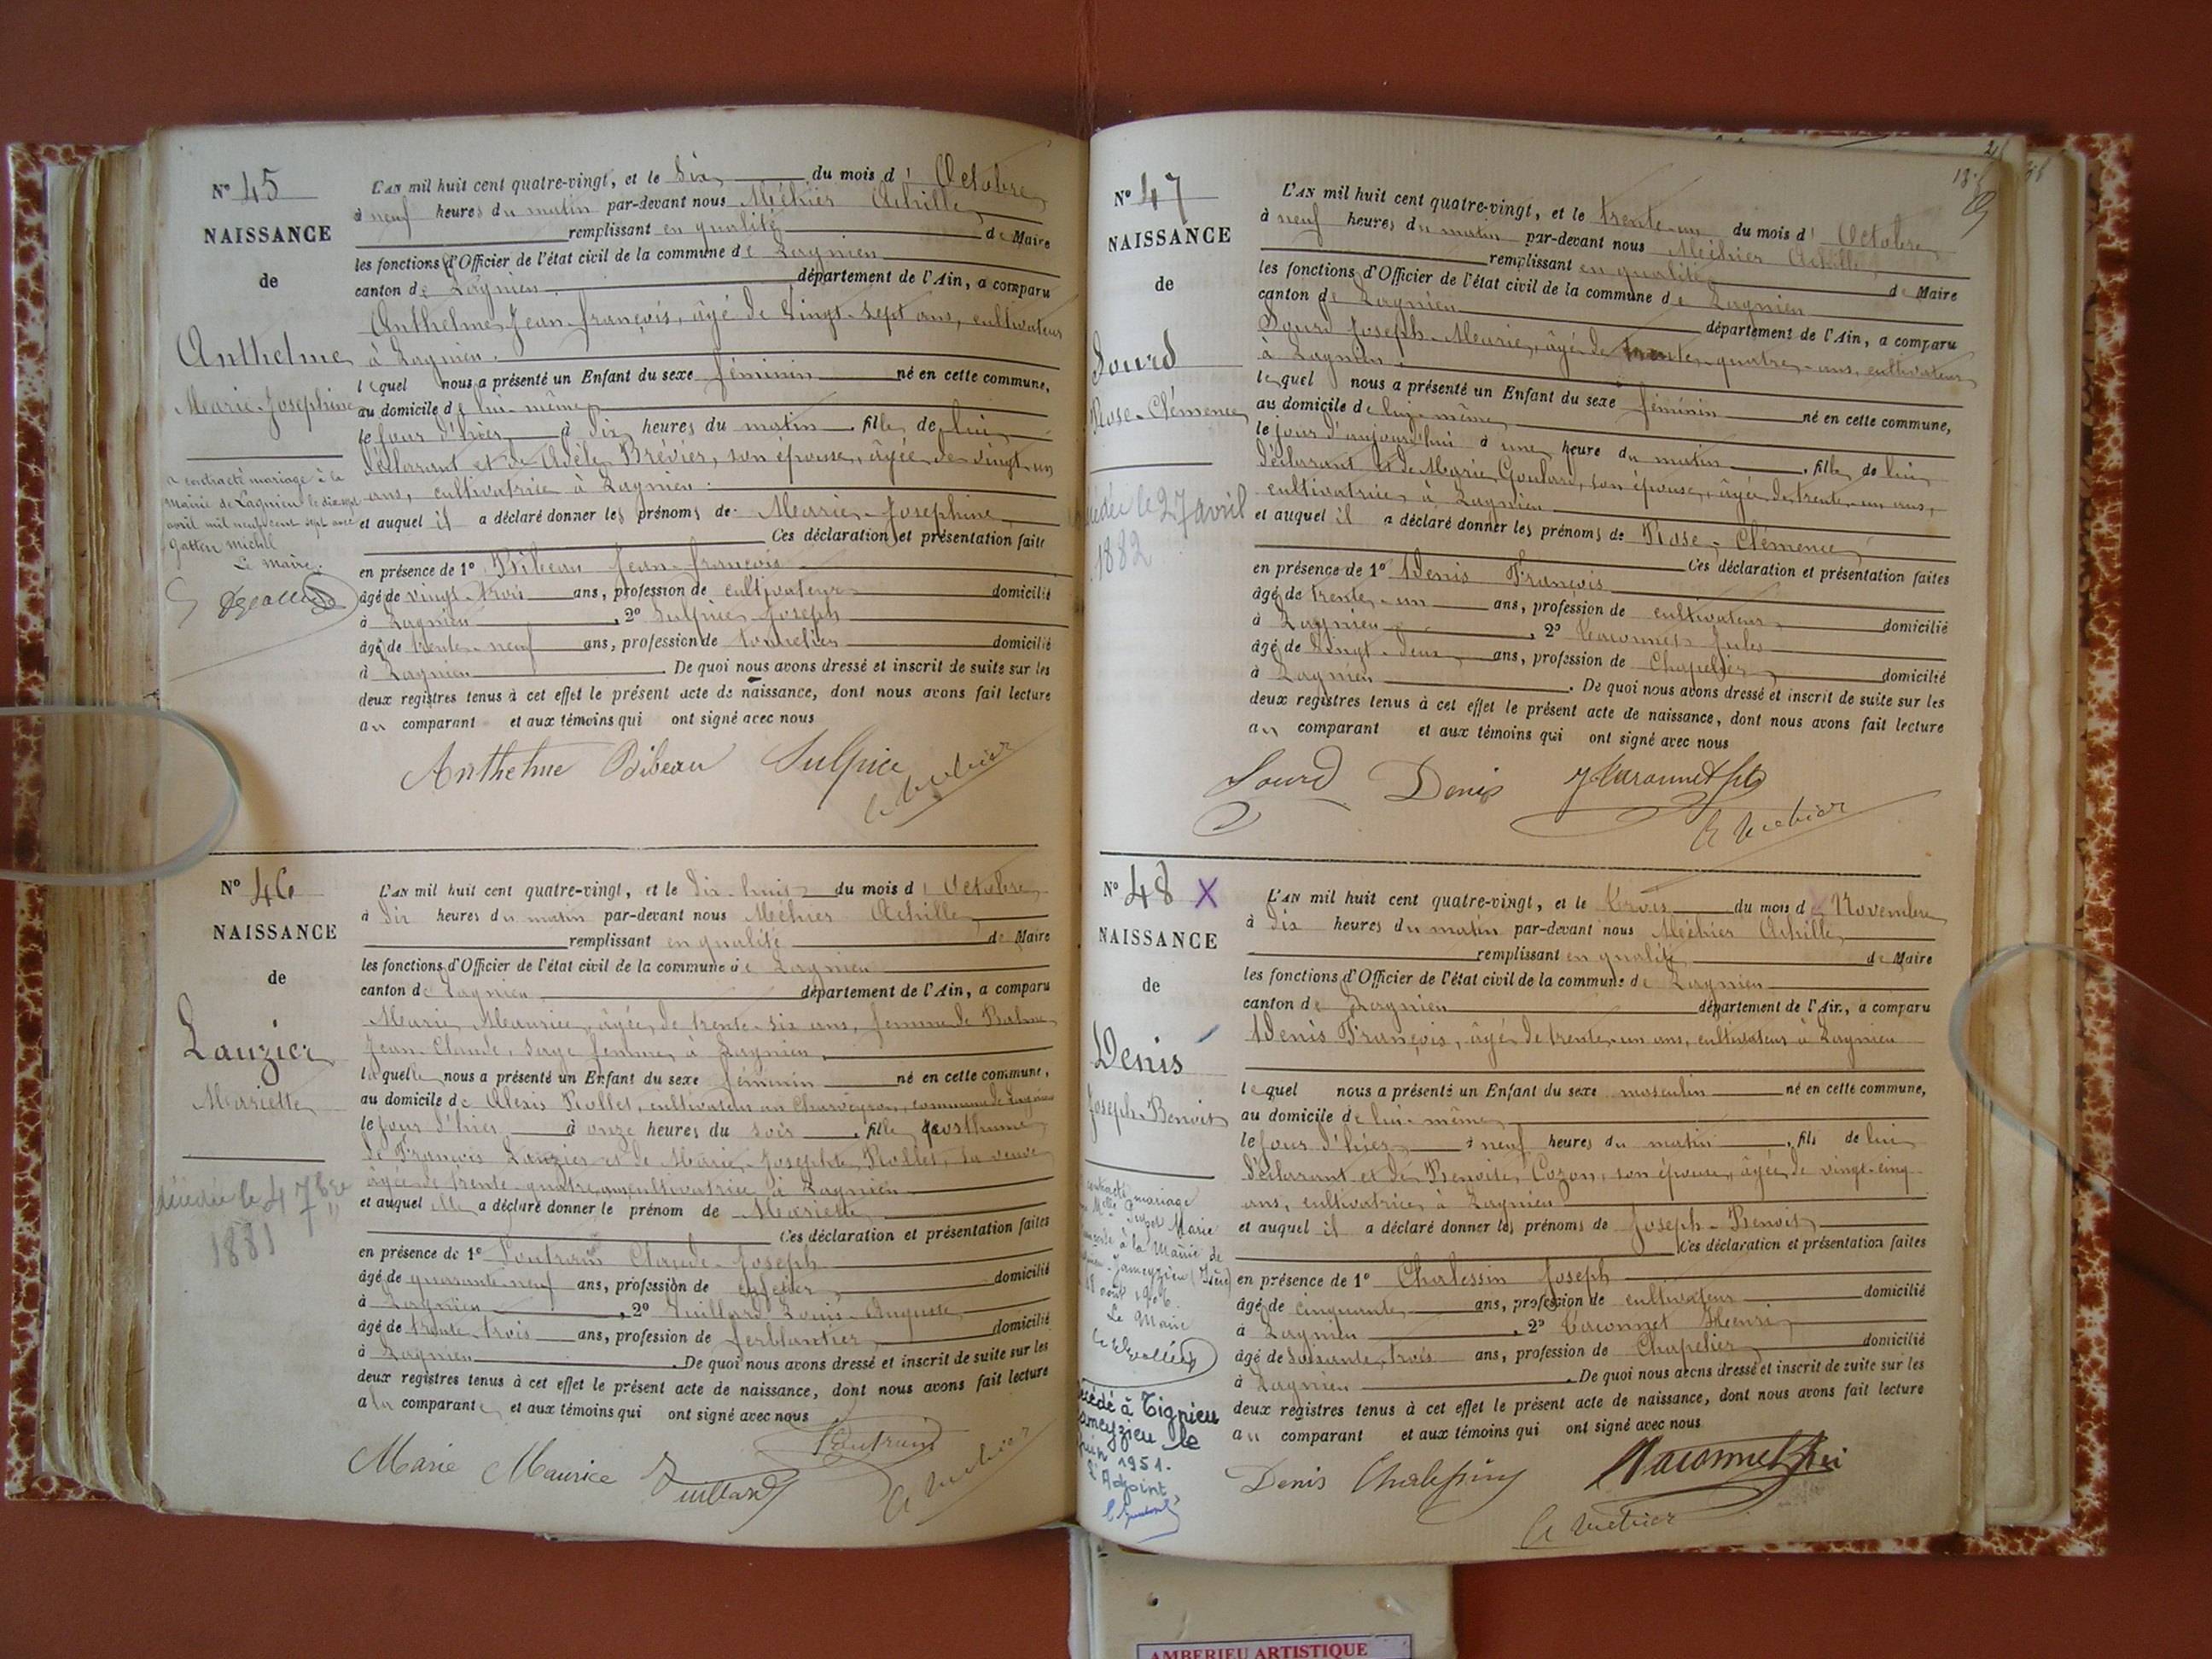 N° 45
NAISSANCE
de
Anthelme
Marie-Josephine
a contracté mariage à la
mairie de Lagnieu le dix sept
avril mil neuf cent sept avec
Michel
Le Maire
L'AN mil huit cent quatre-vingt, et le Six du mois d' Octobre
à neuf heures du matin par-devant nous Méhier Achille
remplissant en qualité de Maire
les fonctions d'Officier de l'état civil de la commune de Lagnieu
canton de Lagnieu département de l'Ain, a comparu
Anthelme Jean-françois, âgé de Vingt-sept ans, cultivateur
à Lagnieu.
lequel nous a présenté un Enfant du sexe féminin né en cette commune,
au domicile de lui-même
le jour d'hier à dix heures du matin, fille de lui
déclarant et de Adèle Brévier, son épouse, âgée de vingt-un
ans, cultivatrice à Lagnieu.
et auquel il a déclaré donner les prénoms de Marie-Josephine
Ces déclaration et présentation faite
en présence de 1° Bibeau Jean-françois
âgé de vingt-trois ans, profession de cultivateur domicilié
à Lagnieu, 2° Sulpice Joseph
âgé de trente-neuf ans, profession de tonnelier domicilié
à Lagnieu. De quoi nous avons dressé et inscrit de suite sur les
deux registres tenus à cet effet le présent acte de naissance, dont nous avons fait lecture
au comparant et aux témoins qui ont signé avec nous
Anthelme Bibeau Sulpice
A Méhier
N° 46
NAISSANCE
de
Lauzier
Mariette
décédée le 4 7bre
1881
L'AN mil huit cent quatre-vingt, et le dix-huit du mois d' Octobre
à dix heures du matin par-devant nous Méhier Achille
remplissant en qualité de Maire
les fonctions d'Officier de l'état civil de la commune de Lagnieu
canton de Lagnieu département de l'Ain, a comparu
Marie Maurice, âgée de trente-six ans, femme de Balme
Jean-Claude, sage femme, à Lagnieu,
laquelle nous a présenté un Enfant du sexe féminin né en cette commune,
au domicile de Alexis Rollet, cultivateur au Charveyron, commune de Lagnieu
le jour d'hier à onze heures du soir, fille posthume
de François Lauzier et de Marie-Josephte Rollet, sa veuve
âgée de trente-quatre ans cultivatrice à Lagnieu
et auquel elle a déclaré donner le prénom de Mariette
Ces déclaration et présentation faites
en présence de 1° Claude-Joseph
âgé de quarante-neuf ans, profession de domicilié
à Lagnieu, 2° Vuillard Louis-Auguste
âgé de trente-trois ans, profession de ferblantier domicilié
à Lagnieu. De quoi nous avons dressé et inscrit de suite sur les
deux registres tenus à cet effet le présent acte de naissance, dont nous avons fait lecture
à la comparante et aux témoins qui ont signé avec nous
Marie Maurice Vuillard
A Méhier
N° 47
NAISSANCE
de
Sourd
Rose-Clémence
décédée le 27 avril
1882
L'AN mil huit cent quatre-vingt, et le trente-un du mois d' Octobre
à neuf heures du matin par-devant nous Méhier Achille
remplissant en qualité de Maire
les fonctions d'Officier de l'état civil de la commune de Lagnieu
canton de Lagnieu département de l'Ain, a comparu
Sourd Joseph-Marie, âgé de trente-quatre-ans, cultivateur
à Lagnieu.
lequel nous a présenté un Enfant du sexe féminin né en cette commune,
au domicile de lui-même
le jour d'aujourd'hui à une heure du matin, fille de lui
déclarant et de Marie Goulard, son épouse, âgée de trente-un ans,
cultivatrice à Lagnieu
et auquel il a déclaré donner les prénoms de Rose-Clémence
Ces déclaration et présentation faites
en présence de 1° Denis François
âgé de trente-un ans, profession de cultivateur domicilié
à Lagnieu, 2° Vaconnet Jules
âgé de Vingt-deux ans, profession de Chapelier domicilié
à Lagnieu. De quoi nous avons dressé et inscrit de suite sur les
deux registres tenus à cet effet le présent acte de naissance, dont nous avons fait lecture
au comparant et aux témoins qui ont signé avec nous
Sourd Denis
A Méhier
N° 48 X
NAISSANCE
de
Denis
Joseph-Benoit
contracté mariage
Marie
à la Mairie de
Jameyzieu (Isère)
18 août 1906.
Le Maire
décédé à Tignieu
Jameyzieu le
juin 1951.
l'Adjoint,
L'AN mil huit cent quatre-vingt, et le trois du mois de Novembre
à dix heures du matin par-devant nous Méhier Achille
remplissant en qualité de Maire
les fonctions d'Officier de l'état civil de la commune de Lagnieu
canton de Lagnieu département de l'Ain, a comparu
Denis François, âgé de trente-un ans, cultivateur à Lagnieu
lequel nous a présenté un Enfant du sexe masculin né en cette commune,
au domicile de lui-même
le jour d'hier à neuf heures du matin, fils de lui
déclarant et de Benoite Cozon, son épouse, âgée de vingt-cinq
ans, cultivatrice à Lagnieu
et auquel il a déclaré donner les prénoms de Joseph-Benoit
Ces déclaration et présentation faites
en présence de 1° Charlessin Joseph
âgé de cinquante ans, profession de cultivateur domicilié
à Lagnieu, 2° Vaconnet Henri
âgé de soixante-trois ans, profession de Chapelier domicilié
à Lagnieu. De quoi nous avons dressé et inscrit de suite sur les
deux registres tenus à cet effet le présent acte de naissance, dont nous avons fait lecture
au comparant et aux témoins qui ont signé avec nous
Denis
A Méhier
AMBERIEU ARTISTIQUE